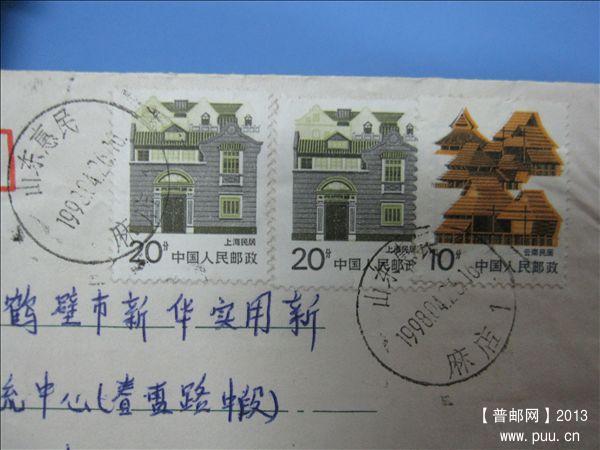 20分 上海民居
中国人民邮政
20分 上海民居
中国人民邮政
10分 云南民居
中国人民邮政
山东惠民
1998.04.26.16
麻店
山东惠民
1998.04.26.16
麻店 1
鹤壁市新华实用新
流中心(春雷路中段)
【普邮网】2013
www.puu.cn